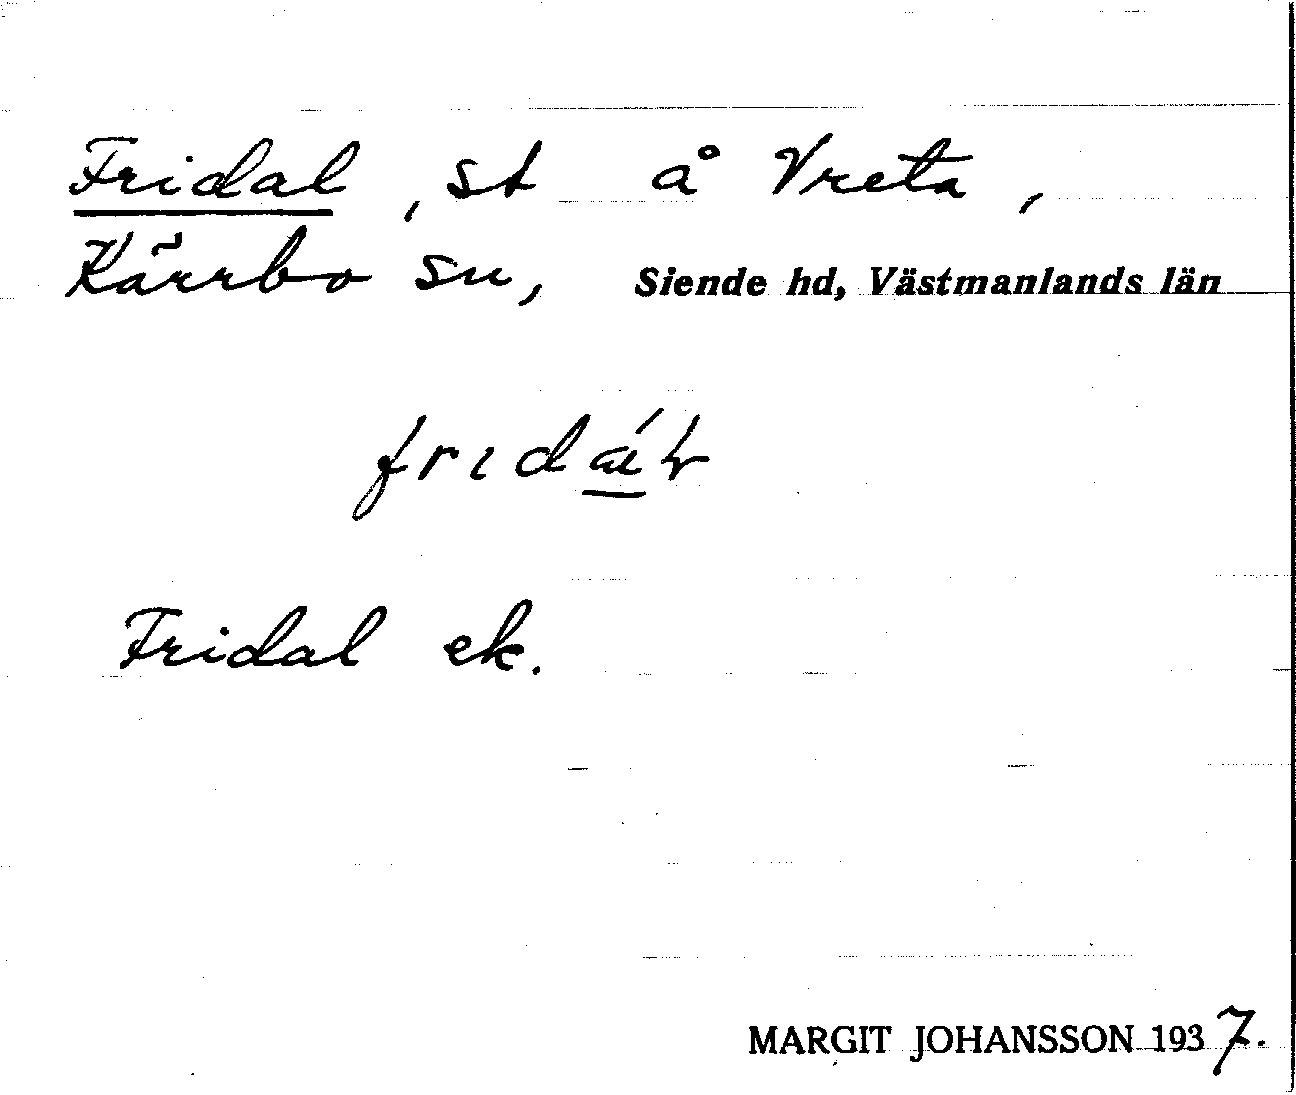 Fridal, st å Vreta,
Kärrbo sn, Siende hd, Västmanlands län
Fridal ek.
MARGIT JOHANSSON 1937.